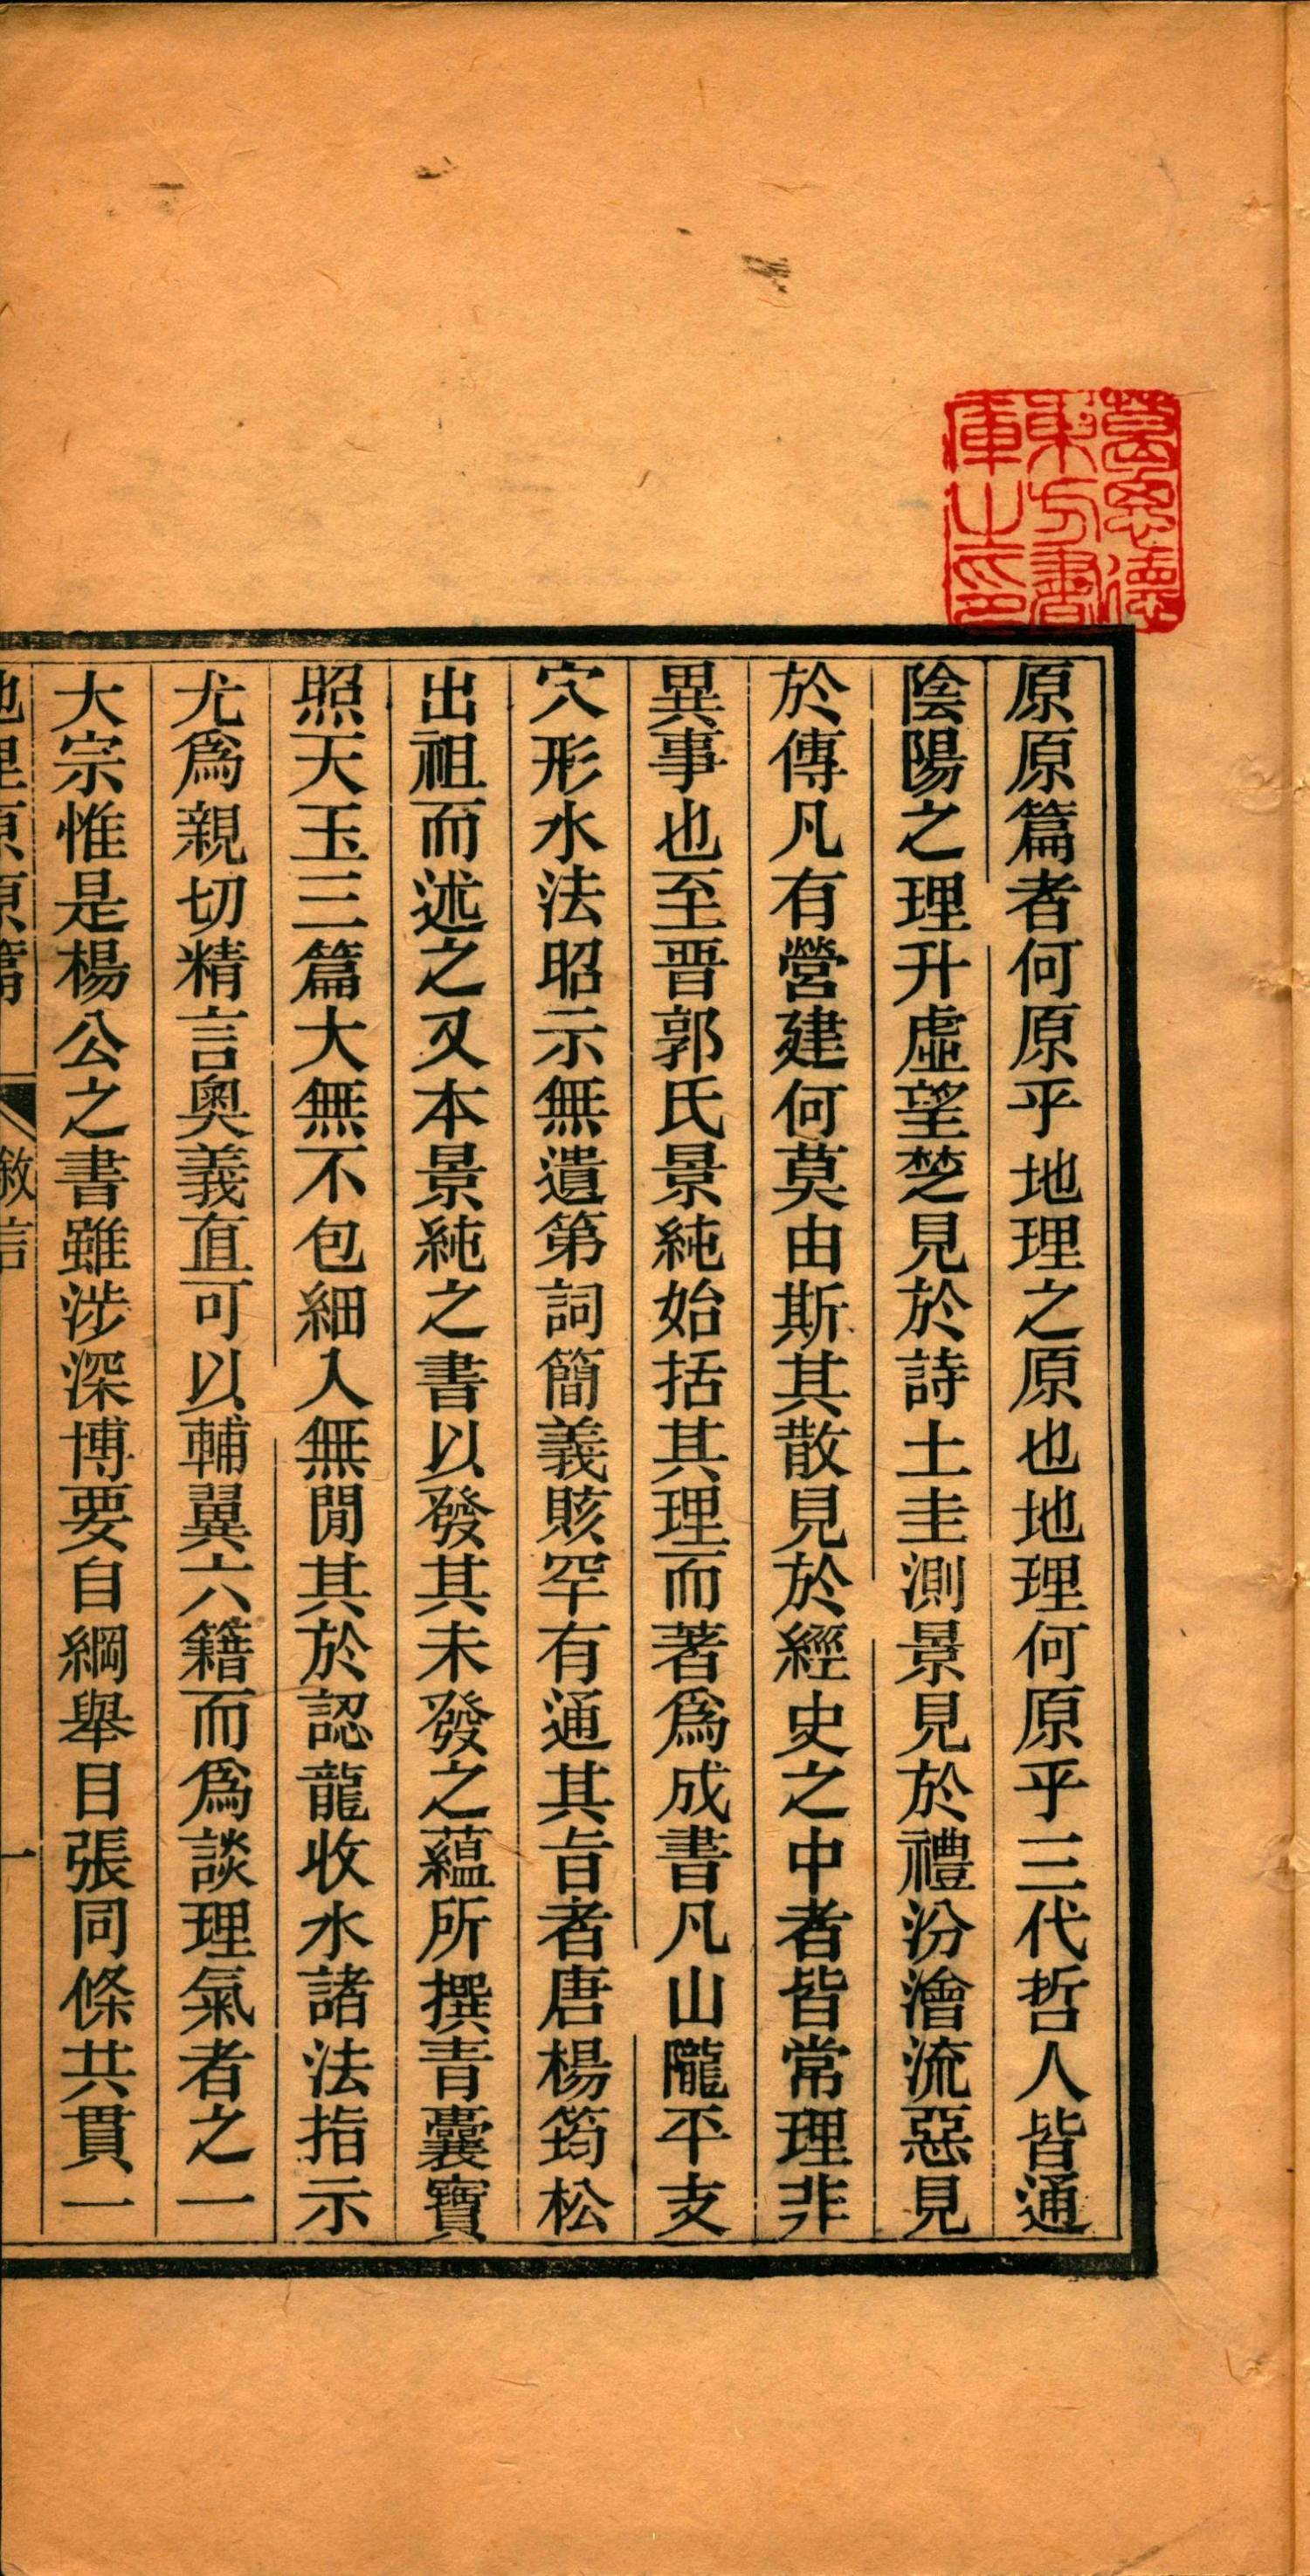 葛思德
東方書
庫之印
原原篇者何原乎地理之原也地理何原乎三代哲人皆通
陰陽之理升虛望楚見於詩土圭測景見於禮汾澮流惡見
於傳凡有營建何莫由斯其散見於經史之中者皆常理非
異事也至晋郭氏景純始括其理而著爲成書凡山隴平支
穴形水法昭示無遺第詞簡義賅罕有通其旨者唐楊筠松
出祖而述之又本景純之書以發其未發之蘊所撰青囊寶
照天玉三篇大無不包細入無閒其於認龍收水諸法指示
尤爲親切精言奧義直可以輔翼六籍而爲談理氣者之一
大宗惟是楊公之書雖涉深博要自綱舉目張同條共貫一
地理原原篇 敘言 一